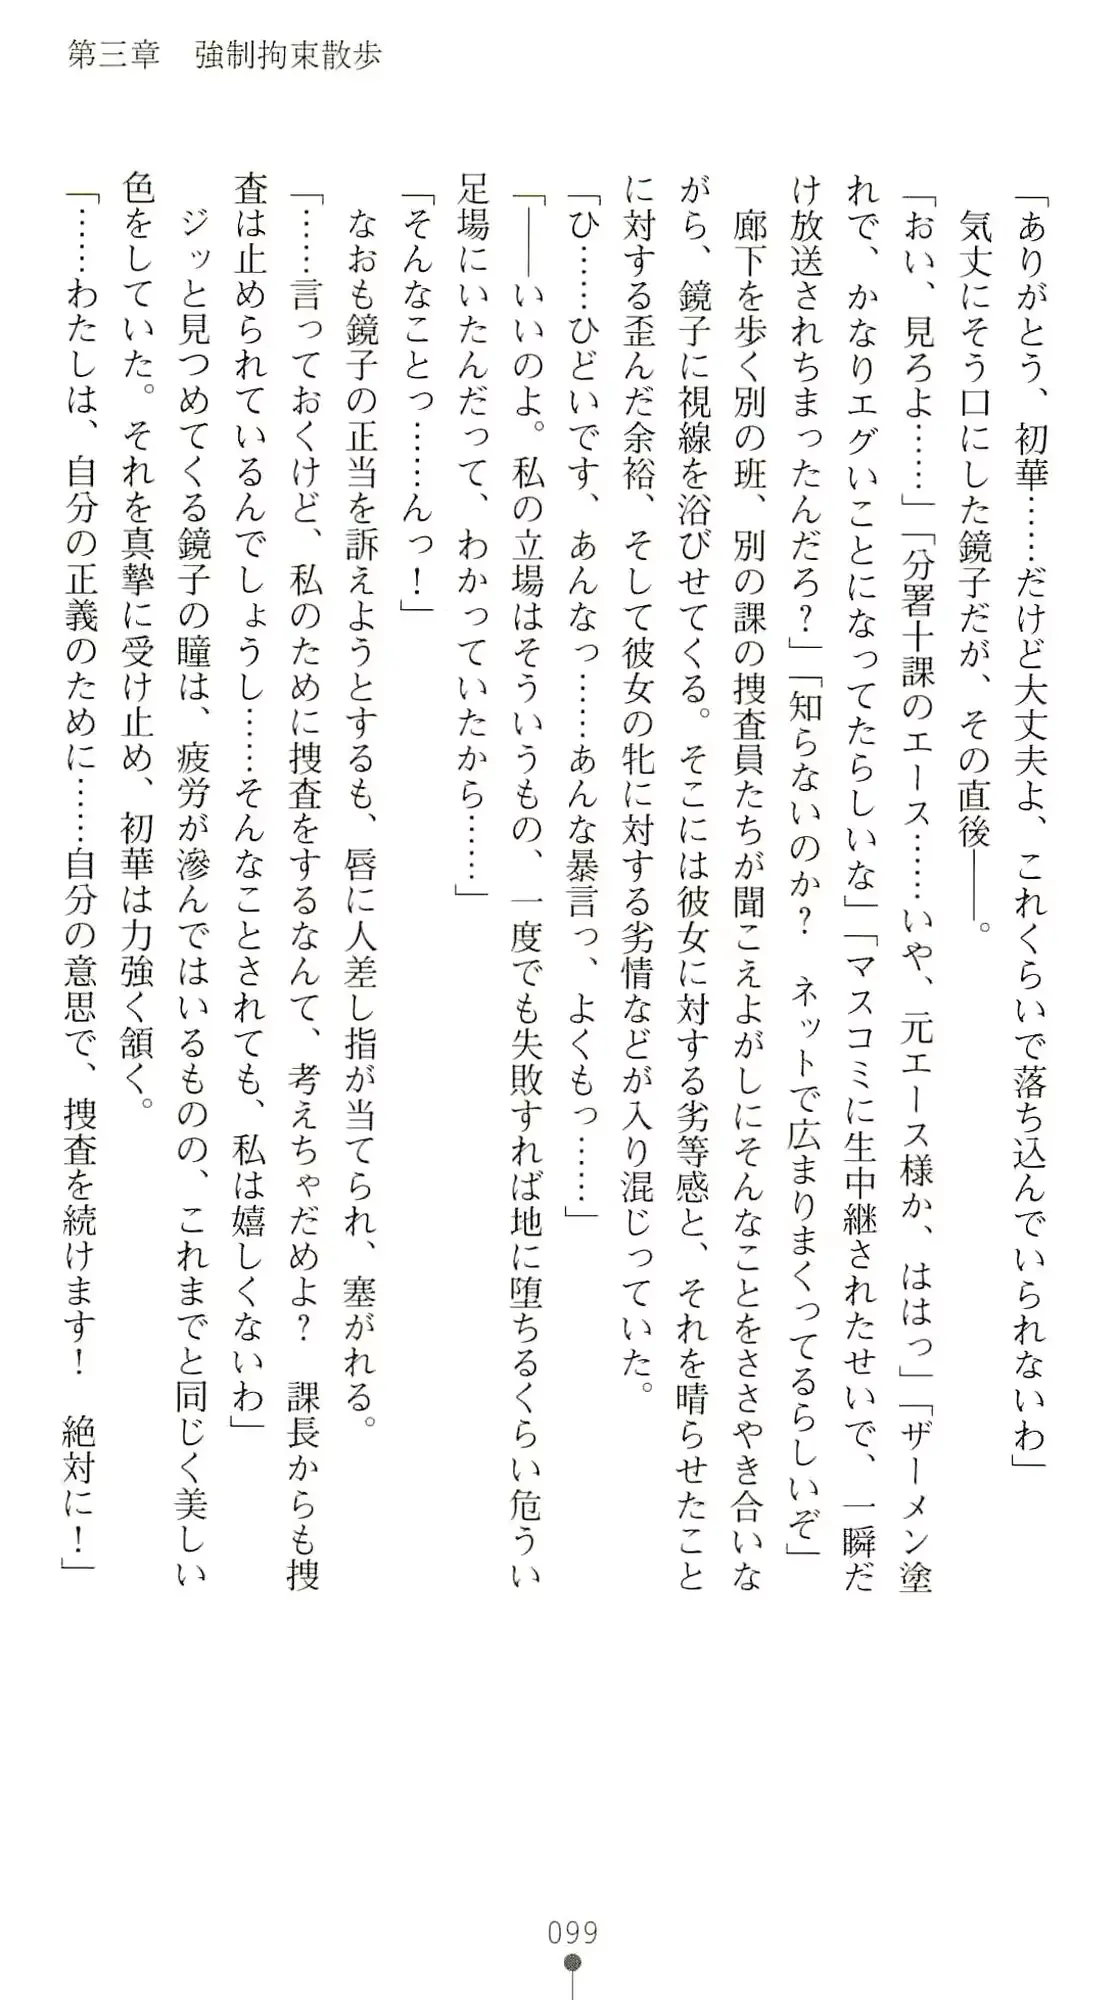 第三章　強制拘束散歩
「ありがとう、初華……だけど大丈夫よ、これくらいで落ち込んでいられないわ」
　気丈にそう口にした鏡子だが、その直後――。
「おい、見ろよ……」「分署十課のエース……いや、元エース様か、ははっ」「ザーメン塗
れで、かなりエグいことになってたらしいな」「マスコミに生中継されたせいで、一瞬だ
け放送されちまったんだろ？」「知らないのか？　ネットで広まりまくってるらしいぞ」
　廊下を歩く別の班、別の課の捜査員たちが聞こえよがしにそんなことをささやき合いな
がら、鏡子に視線を浴びせてくる。そこには彼女に対する劣等感と、それを晴らせたこと
に対する歪んだ余裕、そして彼女の牝に対する劣情などが入り混じっていた。
「ひ……ひどいです、あんなっ……あんな暴言っ、よくもっ……」
「――いいのよ。私の立場はそういうもの、一度でも失敗すれば地に堕ちるくらい危うい
足場にいたんだって、わかっていたから……」
「そんなことっ……んっ！」
　なおも鏡子の正当を訴えようとするも、唇に人差し指が当てられ、塞がれる。
「……言っておくけど、私のために捜査をするなんて、考えちゃだめよ？　課長からも捜
査は止められているんでしょうし……そんなことされても、私は嬉しくないわ」
　ジッと見つめてくる鏡子の瞳は、疲労が滲んではいるものの、これまでと同じく美しい
色をしていた。それを真摯に受け止め、初華は力強く頷く。
「……わたしは、自分の正義のために……自分の意思で、捜査を続けます！　絶対に！」
099